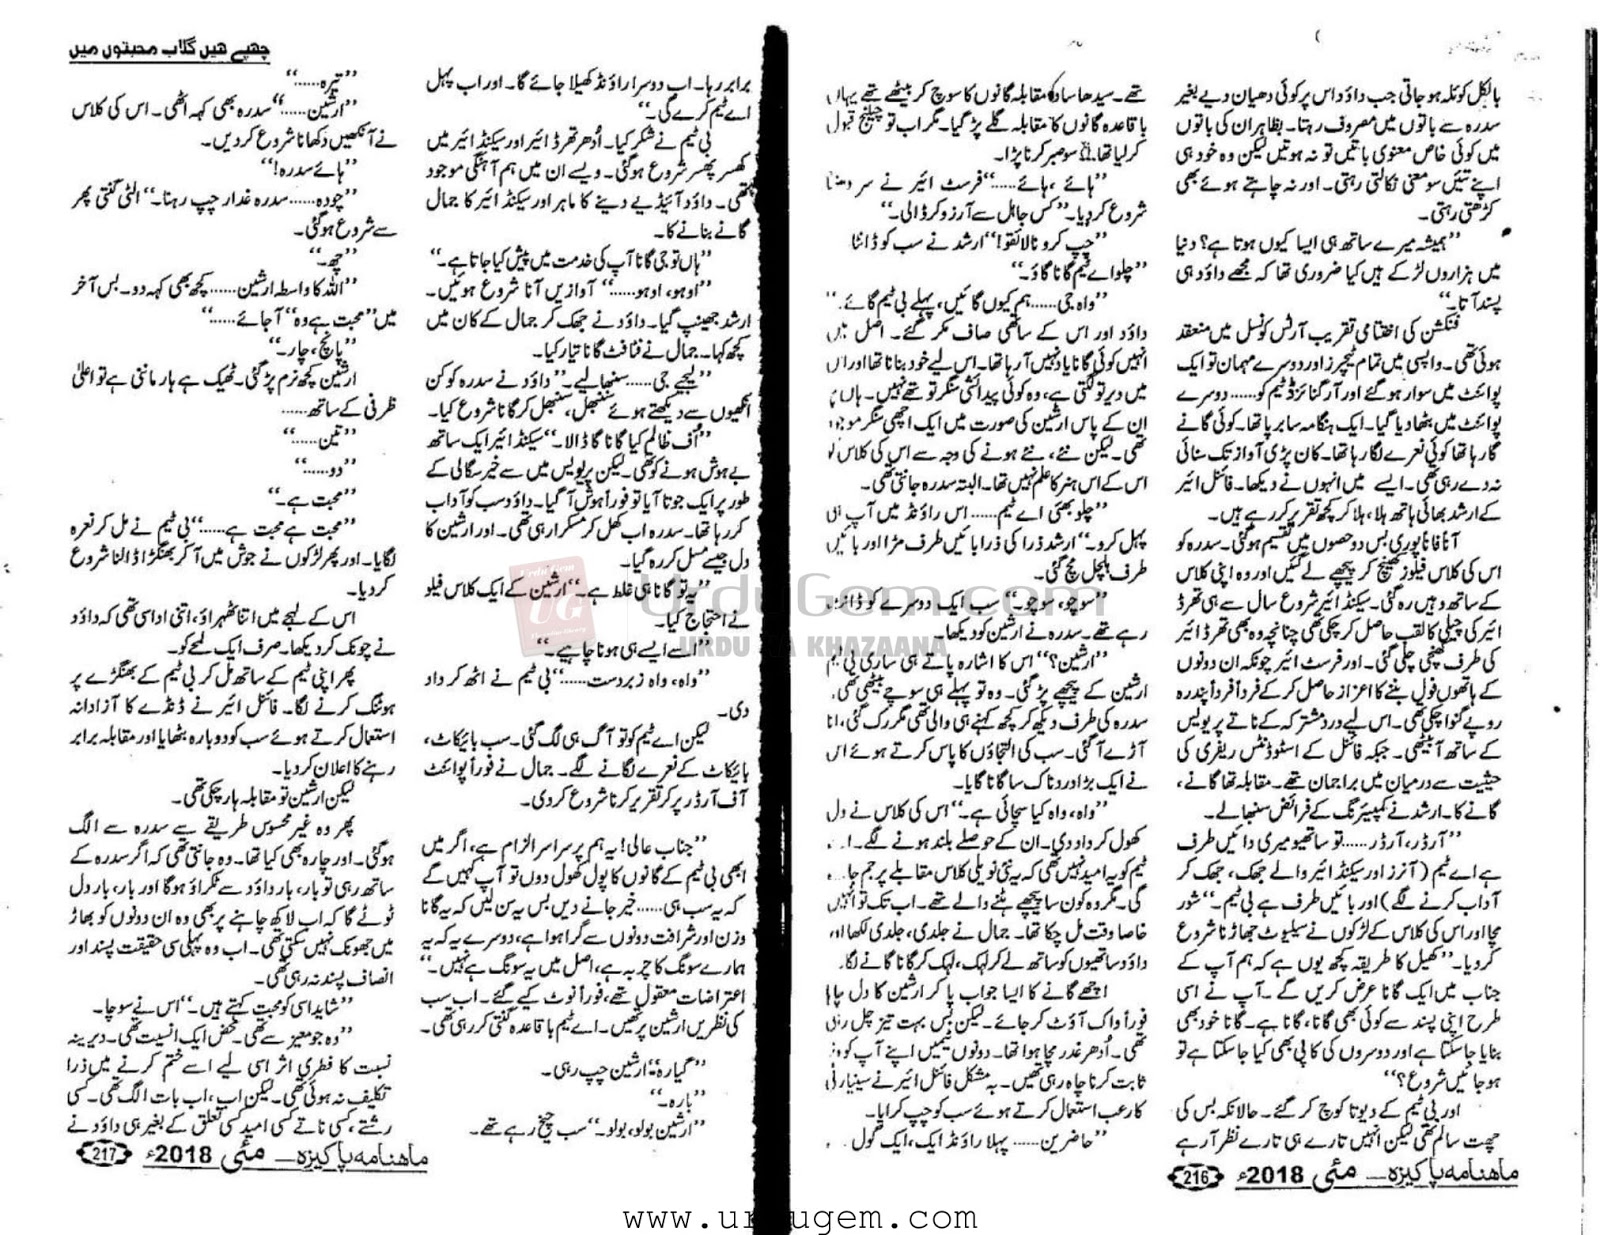 بالکل کوئلہ ہو جاتی جب داؤد اس پر کوئی دھیان دیے بغیر
سدرہ سے باتوں میں مصروف رہتا۔ بظاہر ان کی باتوں
میں کوئی خاص معنوی باتیں تو نہ ہوتیں لیکن وہ خود ہی
اپنے تئیں سو معنی نکالتی رہتی۔ اور نہ چاہتے ہوئے بھی
کڑھتی رہتی۔
”ہمیشہ میرے ساتھ ہی ایسا کیوں ہوتا ہے؟ دنیا
میں ہزاروں لڑکے ہیں کیا ضروری تھا کہ مجھے داؤد ہی
پسند آتا۔“
فنکشن کی اختتامی تقریب آرٹس کونسل میں منعقد
ہوئی تھی۔ واپسی میں تمام ٹیچرز اور دوسرے مہمان تو ایک
پوائنٹ میں سوار ہو گئے اور آرگنائزڈ ٹیم کو...... دوسرے
پوائنٹ میں بٹھا دیا گیا۔ ایک ہنگامہ سا برپا تھا۔ کوئی گانے
گا رہا تھا کوئی نعرے لگا رہا تھا۔ کان پڑی آواز تک سنائی
نہ دے رہی تھی۔ ایسے میں انہوں نے دیکھا۔ فائنل ائیر
کے ارشد بھائی ہاتھ ہلا، ہلا کر کچھ تقریر کر رہے ہیں۔
آنا فانا پوری بس دو حصوں میں تقسیم ہو گئی۔ سدرہ کو
اس کی کلاس فیلوز کھینچ کر پیچھے لے گئیں اور وہ اپنی کلاس
کے ساتھ وہیں رہ گئی۔ سیکنڈ ائیر شروع سال سے ہی تھرڈ
ائیر کی چیلی کا لقب حاصل کر چکی تھی چنانچہ وہ بھی تھرڈ ائیر
کی طرف کھنچی چلی گئی۔ اور فرسٹ ائیر چونکہ ان دونوں
کے ہاتھوں فول بننے کا اعزاز حاصل کر کے فرداً فرداً پندرہ
روپے گنوا چکی تھی۔ اس لیے درد مشترکہ کے ناتے پریویس
کے ساتھ آ بیٹھی۔ جبکہ فائنل کے اسٹوڈنٹس ریفری کی
حیثیت سے درمیان میں براجمان تھے۔ مقابلہ تھا گانے،
گانے کا۔ ارشد نے کمپیئرنگ کے فرائض سنبھالے۔
”آرڈر، آرڈر...... تو ساتھیو میری دائیں طرف
ہے اے ٹیم (آنرز اور سیکنڈ ائیر والے جھک، جھک کر
آداب کرنے لگے) اور بائیں طرف ہے بی ٹیم۔“ شور
مچا اور اس کی کلاس کے لڑکوں نے سیلیوٹ جھاڑنا شروع
کر دیا۔ ”کھیل کا طریقہ کچھ یوں ہے کہ ہم آپ کے
جناب میں ایک گانا عرض کریں گے۔ آپ نے اسی
طرح اپنی پسند سے کوئی بھی گانا، گانا ہے۔ گانا خود بھی
بنایا جا سکتا ہے اور دوسروں کی کاپی بھی کیا جا سکتا ہے تو
ہو جائیں شروع؟“
اور بی ٹیم کے دیوتا کوچ کر گئے۔ حالانکہ بس کی
چھت سالم تھی لیکن انہیں تارے ہی تارے نظر آ رہے
ماہنامہ پاکیزہ ــ مئی 2018ء 216
تھے۔ سیدھا سادہ مقابلہ گانوں کا سوچ کر بیٹھے تھے یہاں
با قاعدہ گانوں کا مقابلہ گلے پڑ گیا۔ مگر اب تو چیلنج قبول
کر لیا تھا۔ سو صبر کرنا پڑا۔
”ہائے، ہائے......“ فرسٹ ائیر نے سر دھننا
شروع کر دیا۔ ”کس جاہل سے آرزو کر ڈالی۔“
”چپ کرو نالائقو!“ ارشد نے سب کو ڈانٹا
”چلو اے ٹیم گانا گاؤ۔“
”واہ جی...... ہم کیوں گائیں، پہلے بی ٹیم گائے۔“
داؤد اور اس کے ساتھی صاف مکر گئے۔ اصل میں
انہیں کوئی گانا یاد نہیں آ رہا تھا۔ اس لیے خود بنانا تھا اور اس
میں دیر تو لگتی ہے، وہ کوئی پیدائشی سنگر تو تھے نہیں۔ ہاں
ان کے پاس ارشین کی صورت میں ایک اچھی سنگر موجود
تھی۔ لیکن نئے، نئے ہونے کی وجہ سے اس کی کلاس کو
اس کے اس ہنر کا علم نہیں تھا۔ البتہ سدرہ جانتی تھی۔
”چلو بھئی اے ٹیم...... اس راؤنڈ میں آپ ہی
پہل کرو۔“ ارشد ذرا کی ذرا بائیں طرف مڑا اور بائیں
طرف ہلچل مچ گئی۔
”سوچو، سوچو۔“ سب ایک دوسرے کو ڈانٹ
رہے تھے۔ سدرہ نے ارشین کو دیکھا۔
”ارشین؟“ اس کا اشارہ پاتے ہی ساری بی ٹیم
ارشین کے پیچھے پڑ گئی۔ وہ تو پہلے ہی سوچے بیٹھی تھی۔
سدرہ کی طرف دیکھ کر کچھ کہنے ہی والی تھی مگر رک گئی، انا
آڑے آ گئی۔ سب کی التجاؤں کا پاس کرتے ہوئے اس
نے ایک بڑا دردناک سا گانا گایا۔
”واہ، واہ کیا سچائی ہے۔“ اس کی کلاس نے دل
کھول کر داد دی۔ ان کے حوصلے بلند ہونے لگے۔ اے
ٹیم کو یہ امید نہیں تھی کہ یہ نئی نویلی کلاس مقابلے پر جم جائے
گی۔ مگر وہ کون سا پیچھے ہٹنے والے تھے۔ اب تک تو انہیں
خاصا وقت مل چکا تھا۔ جمال نے جلدی، جلدی لکھا اور
داؤد ساتھیوں کو ساتھ لے کر لہک، لہک کر گانا گانے لگا۔
اچھے گانے کا ایسا جواب پا کر ارشین کا دل چاہا
فوراً واک آؤٹ کر جائے۔ لیکن بس بہت تیز چل رہی
تھی۔ اُدھر غدر مچا ہوا تھا۔ دونوں ٹیمیں اپنے آپ کو
ثابت کرنا چاہ رہی تھیں۔ بہ مشکل فائنل ائیر نے سینیارٹی
کا رعب استعمال کرتے ہوئے سب کو چپ کرایا۔
”حاضرین...... پہلا راؤنڈ ایک، ایک گول
چھپے ھیں گلاب محبتوں میں
برابر رہا۔ اب دوسرا راؤنڈ کھیلا جائے گا۔ اور اب پہل
اے ٹیم کرے گی۔“
بی ٹیم نے شکر کیا۔ اُدھر تھرڈ ائیر اور سیکنڈ ائیر میں
کھسر پھسر شروع ہو گئی۔ ویسے ان میں ہم آہنگی موجود
تھی۔ داؤد آئیڈیے دینے کا ماہر اور سیکنڈ ائیر کا جمال
گانے بنانے کا۔
”ہاں تو جی گانا آپ کی خدمت میں پیش کیا جاتا ہے۔“
”اوہو، اوہو......“ آوازیں آنا شروع ہوئیں۔
ارشد جھینپ گیا۔ داؤد نے جھک کر جمال کے کان میں
کچھ کہا۔ جمال نے فٹافٹ گانا تیار کیا۔
”لیجیے جی...... سنبھالیے۔“ داؤد نے سدرہ کو کن
انکھیوں سے دیکھتے ہوئے سنبھل، سنبھل کر گانا شروع کیا۔
”اُف ظالم کیا گانا گا ڈالا۔“ سیکنڈ ائیر ایک ساتھ
بے ہوش ہونے کو تھی۔ لیکن پریویس میں سے خیر سگالی کے
طور پر ایک جوتا آیا تو فوراً ہوش آ گیا۔ داؤد سب کو آداب
کر رہا تھا۔ سدرہ اب کھل کر مسکرا رہی تھی۔ اور ارشین کا
دل جیسے مسل کر رہ گیا۔
”یہ تو گانا ہی غلط ہے۔“ ارشین کے ایک کلاس فیلو
نے احتجاج کیا۔
”اسے ایسے ہی ہونا چاہیے۔“
”واہ، واہ زبردست......“ بی ٹیم نے اٹھ کر داد
دی۔
لیکن اے ٹیم کو تو آگ ہی لگ گئی۔ سب بائیکاٹ،
بائیکاٹ کے نعرے لگانے لگے۔ جمال نے فوراً پوائنٹ
آف آرڈر پر کر تقریر کرنا شروع کر دی۔
”جناب عالی! یہ ہم پر سراسر الزام ہے، اگر میں
ابھی بی ٹیم کے گانوں کا پول کھول دوں تو آپ کہیں گے
کہ یہ سب ہی...... خیر جانے دیں بس یہ سن لیں کہ یہ گانا
وزن اور شرافت دونوں سے گرا ہوا ہے، دوسرے یہ کہ یہ
ہمارے سونگ کا چربہ ہے، اصل میں یہ سونگ ہے نہیں۔“
اعتراضات معقول تھے، فوراً نوٹ کیے گئے۔ اب سب
کی نظریں ارشین پر تھیں۔ اے ٹیم با قاعدہ گنتی کر رہی تھی۔
”گیارہ“ ارشین چپ رہی۔
”بارہ۔“
”ارشین بولو، بولو۔“ سب چیخ رہے تھے۔
”تیرہ......“
”ارشین......“ سدرہ بھی کہہ اٹھی۔ اس کی کلاس
نے آنکھیں دکھانا شروع کر دیں۔
”ہائے سدرہ!“
”چودہ...... سدرہ غدار چپ رہنا۔“ الٹی گنتی پھر
سے شروع ہو گئی۔
”چھ۔“
”اللہ کا واسطہ ارشین...... کچھ بھی کہہ دو۔ بس آخر
میں ”محبت ہے وہ“ آ جائے......“
”پانچ، چار۔“
ارشین کچھ نرم پڑ گئی۔ ٹھیک ہے ہار مانتی ہے تو اعلیٰ
ظرفی کے ساتھ......
”تین......“
”دو......“
”محبت ہے۔“
”محبت ہے محبت ہے......“ بی ٹیم نے مل کر نعرہ
لگایا۔ اور پھر لڑکوں نے جوش میں آ کر بھنگڑا ڈالنا شروع
کر دیا۔
اس کے لہجے میں اتنا ٹھہراؤ، اتنی اداسی تھی کہ داؤد
نے چونک کر دیکھا۔ صرف ایک لمحے کو۔
پھر اپنی ٹیم کے ساتھ مل کر بی ٹیم کے بھنگڑے پر
ہوٹنگ کرنے لگا۔ فائنل ائیر نے ڈنڈے کا آزادانہ
استعمال کرتے ہوئے سب کو دوبارہ بٹھایا اور مقابلہ برابر
رہنے کا اعلان کر دیا۔
لیکن ارشین تو مقابلہ ہار چکی تھی۔
پھر وہ غیر محسوس طریقے سے سدرہ سے الگ
ہو گئی۔ اور چارہ بھی کیا تھا۔ وہ جانتی تھی کہ اگر سدرہ کے
ساتھ رہی تو بار، بار داؤد سے ٹکراؤ ہوگا اور بار، بار دل
ٹوٹے گا کہ اب لاکھ چاہنے پر بھی وہ ان دونوں کو بھاڑ
میں جھونک نہیں سکتی تھی۔ اب وہ پہلی سی حقیقت پسند اور
انصاف پسند نہ رہی تھی۔
”شاید اسی کو محبت کہتے ہیں۔“ اس نے سوچا۔
”وہ جو معیز سے تھی۔ محض ایک انسیت تھی۔ دیرینہ
نسبت کا فطری اثر اسی لیے اسے ختم کرنے میں ذرا
تکلیف نہ ہوئی تھی۔ لیکن اب، اب بات الگ تھی۔ کسی
رشتے، کسی ناتے کسی امید کسی تعلق کے بغیر ہی داؤد نے
ماہنامہ پاکیزہ ــ مئی 2018ء 217
UrduGem.com
URDU KA KHAZAANA
Urdu Gem
UG
www.urdugem.com